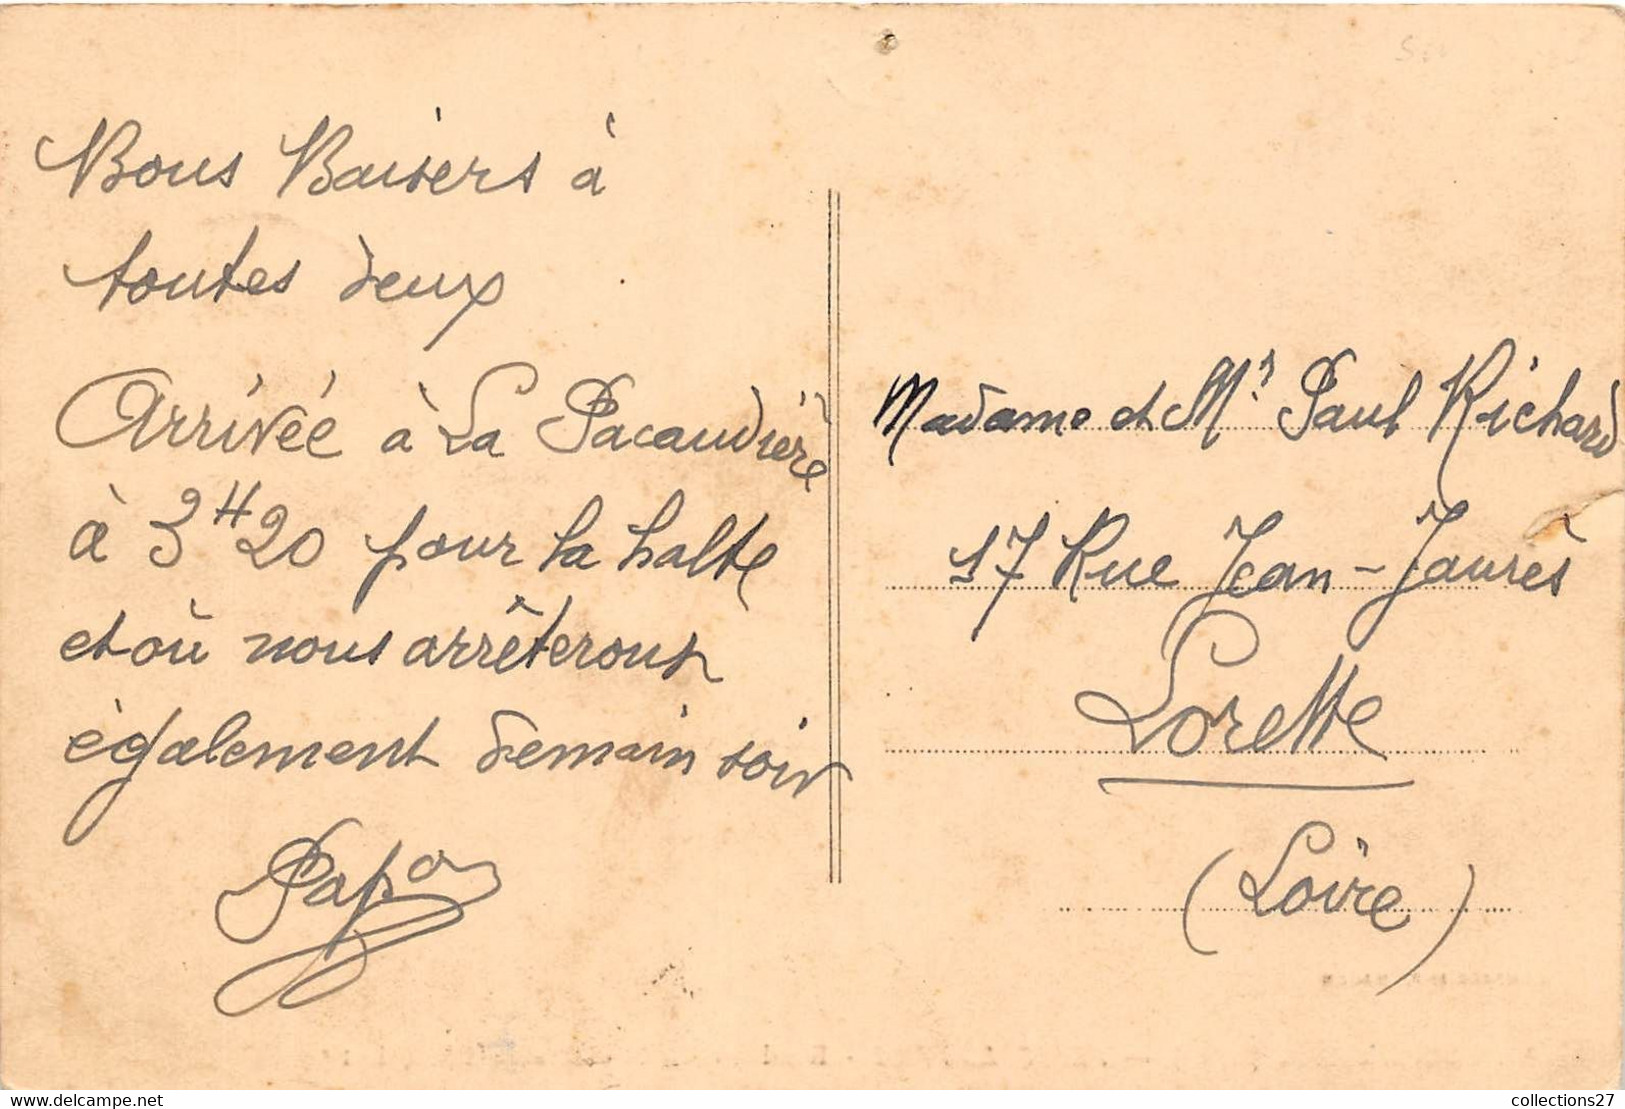 Bons Baisers à
toutes deux
Arrivée à La Pacaudière
à 3H20 pour la halte
et où nous arrêterons
également demain soir
Papa
Madame et Mr Paul Richard
17 Rue Jean-Jaurès
Lorette
(Loire)
Bons Baisers
collections27